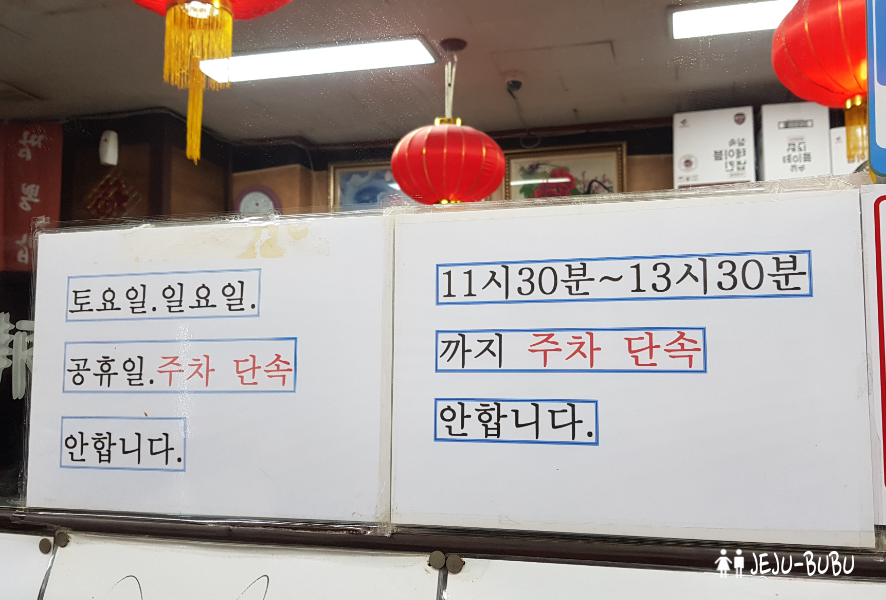 토요일.일요일.
공휴일.주차 단속
안합니다.
11시30분~13시30분
까지 주차 단속
안합니다.
JEJU-BUBU